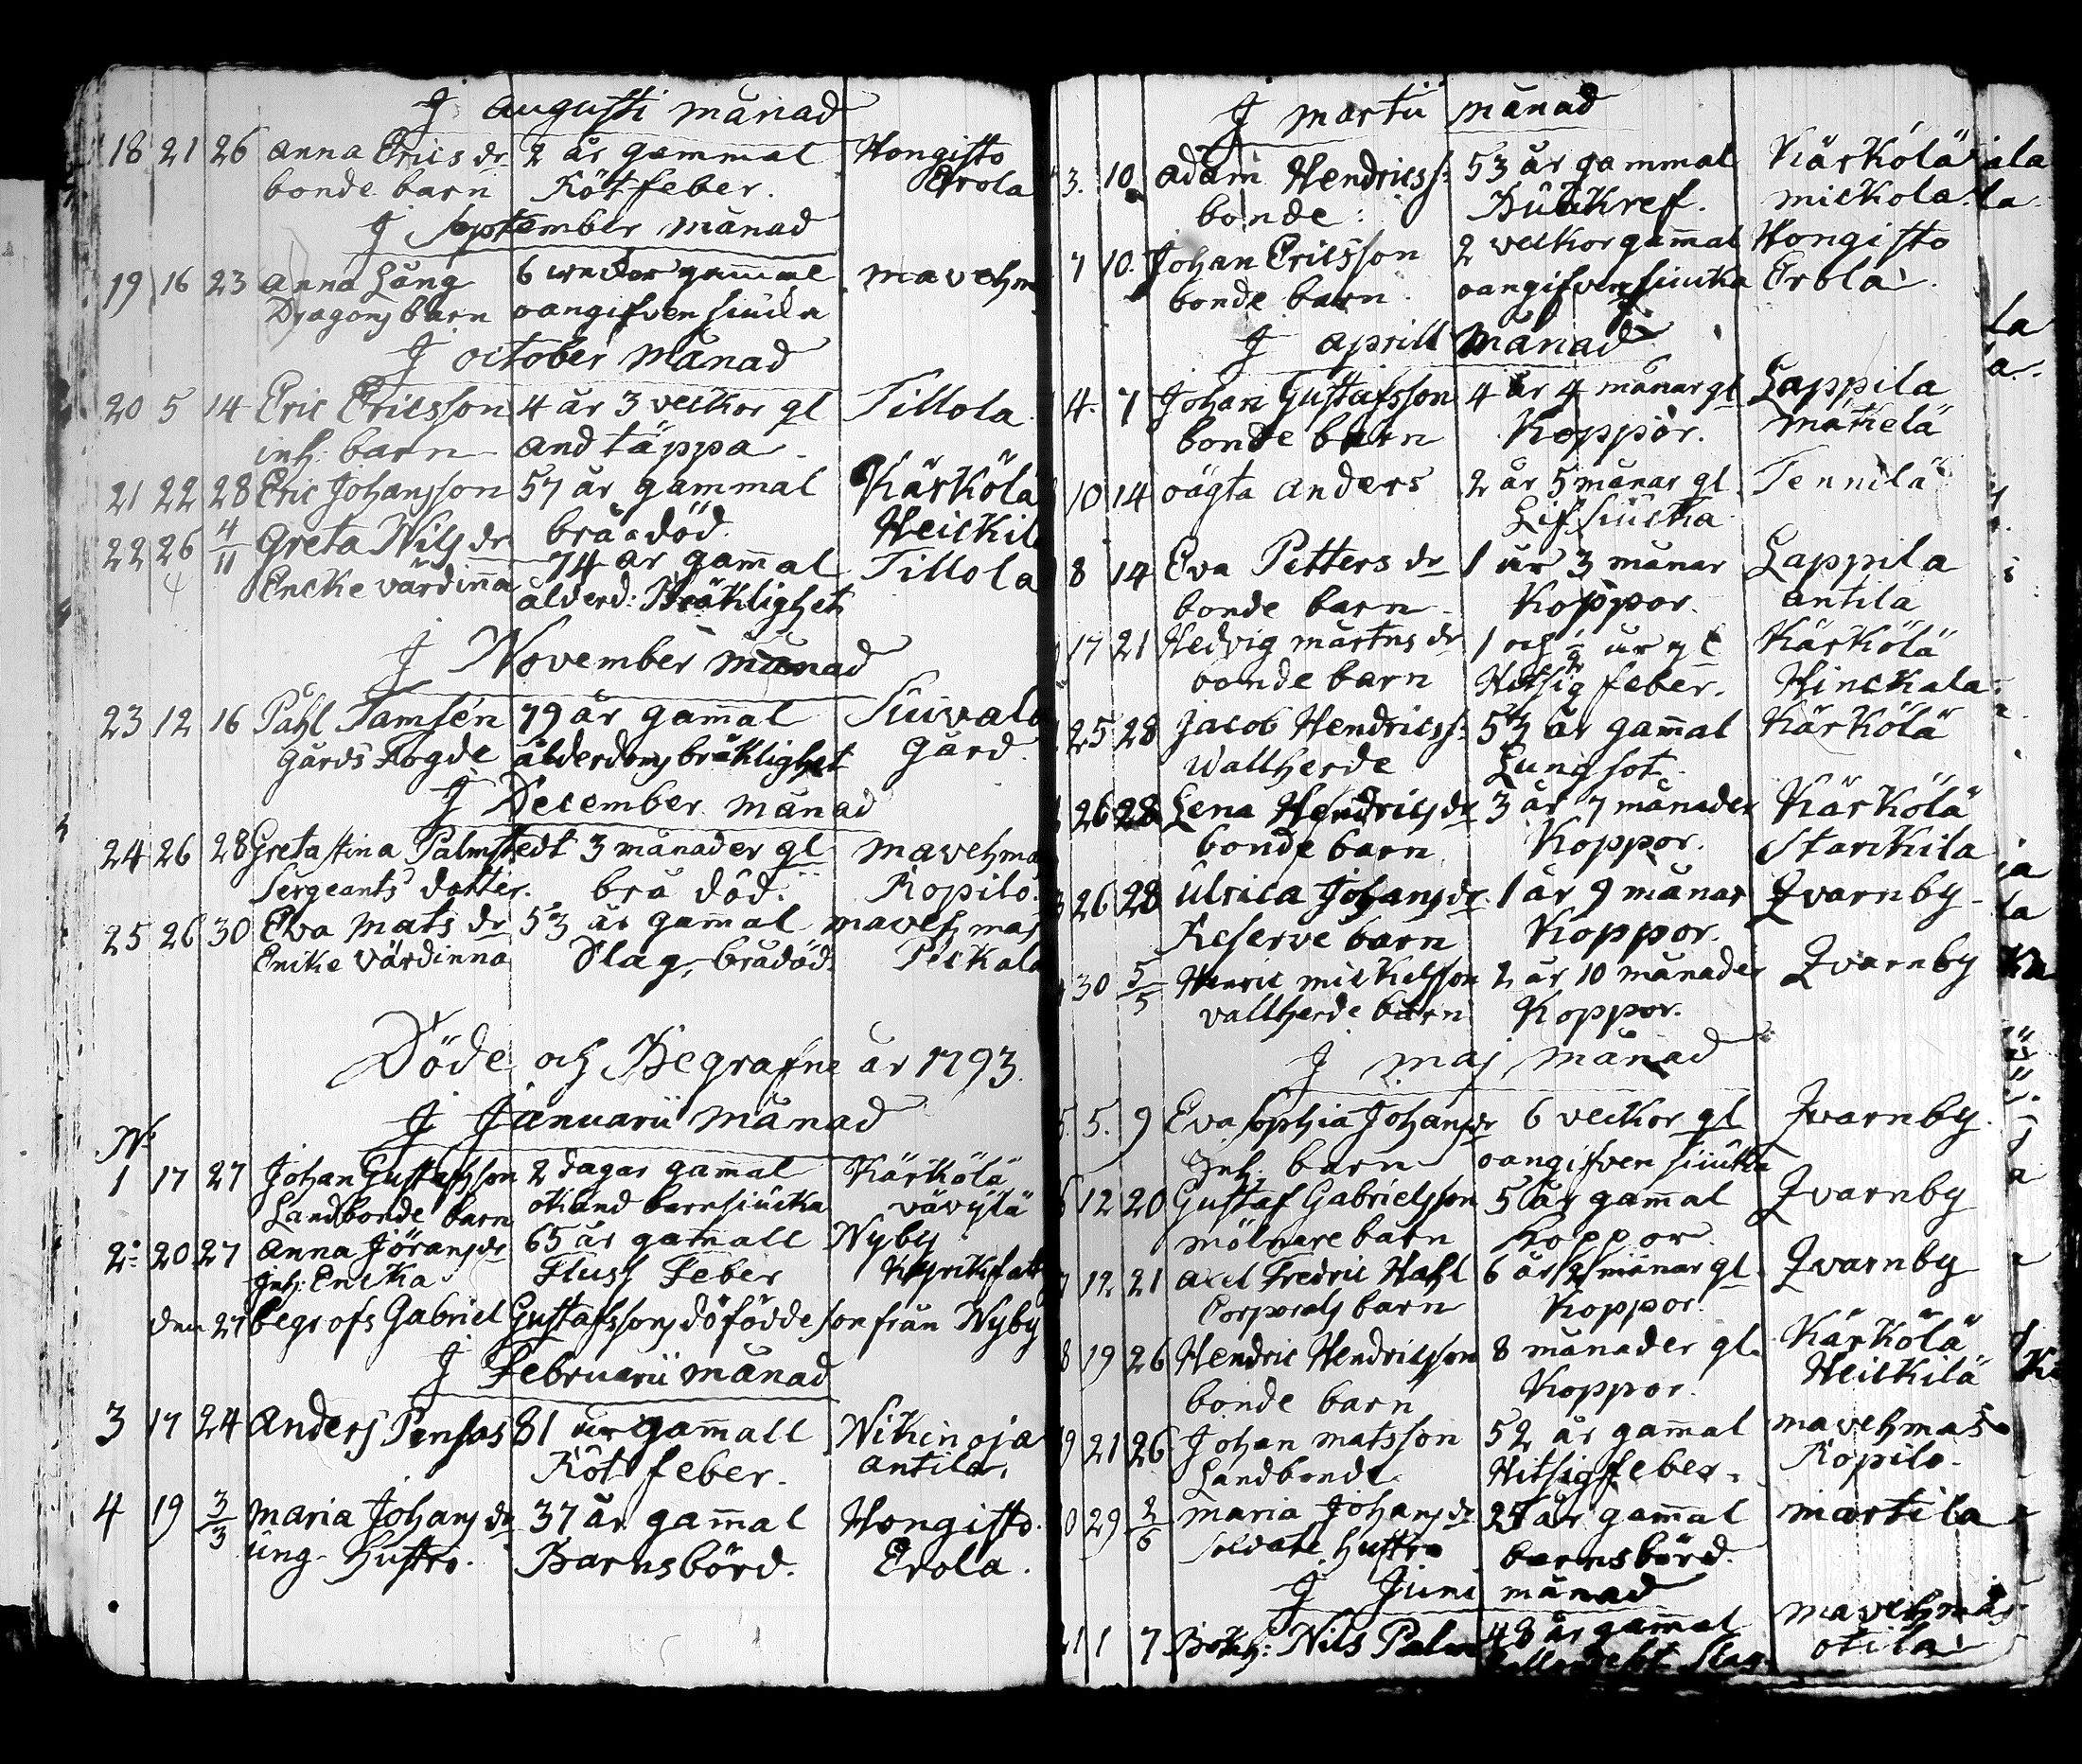 J augusti månad
18 21 26 Anna Erics dr 2 år gammal Hongisto
bonde barn Rötfeber. Erola
J September månad
19 16 23 Anna Lång 6 weckor gammal mavehm
Dragons barn oangifven siucka
J october månad
20 5 14 Eric Ericsson 4 år 3 veckor gl Tillola
inh: barn andtäppa
21 22 28 Eric Johansson 57 år gammal Kärkölä
bråd död. Heickil
22 26 4/11 Greta Nils dr 74 år gammal Tillola
Encke värdinna ålderd: Bräklighet
J November månad
23 12 16 Påhl Tamsén 79 år gammal Siuvala
Gårds Fogde ålderdoms bräklighet Gård
J December månad
24 26 28 Greta Stina Palmstedt 3 månader gl mavehma
Sergeants dotter. brå död. Ropilo
25 26 30 Eva Mats dr 53 år gammal mavehmas
Encke Värdinna Slag, brådöd. Pickala
Döde och Begrafne år 1793.
J Januarii månad
No
1 17 27 Johan Gustafsson 2 dagar gammal Kärkölä
Landbonde barn okänd barnsiucka vävylä
2: 20 27 Anna Jörans dr 65 år gammall Nyby
Inh: Encka Fluss Feber
den 27 begrofs Gabriel Gustafssons döfödde son från Nyby
J Februarii månad
3 17 24 Anders Pensas 81 år gammall Wikinoja
Rötfeber. antila.
4 19 3/3 Maria Johans dr 37 år gammal Hongisto
ung-hustro. Barnsbörd. Erola.
J martii månad
3. 10. Adam Hendricss: 53 år gammal Kärkölä
bonde: Bukkref. mickola.
7 10. Johan Ericsson 2 veckor gammal Hongisto
bonde barn. oangifven siucka Erola.
J aprill månad
4. 7 Johan Gustafsson 4 år 4 månar gl Lappila
bonde barn Koppor. mäkelä
10 14 oägta Anders 2 år 5 månar gl Tennilä
Lifsiucka
8 14 Eva Petters dr 1 år 3 månar Lappila
bonde barn Koppor. antila
17 21 Hedvig mårtns dr 1 och 1/2 år gl Kärkölä
bonde barn Hitsig feber. Hinckala
25 28 Jacob Hendricss: 53 år gammal Kärkölä
Wallherde Lungsot.
26 28 Lena Hendrics dr 3 år 7 månader Kärkölä
bonde barn Koppor. Starckila
26 28 Ulrica Johans dr 1 år 9 månar Qvarnby
Reserve barn Koppor.
30 5/5 Henric mickelsson 2 år 10 månader Qvarnby
vallherde barn Koppor.
J maj månad
5. 5. 9 Eva Sophia Johans dr 6 veckor gl Qvarnby.
Inh. barn oangifven siucka
6 12 20 Gustaf Gabrielsson 5 år gammal Qvarnby
mölnare barn Koppor.
7 12 21 Axel Fredric Hahl 6 år 2 månar gl. Qvarnby
Corporals barn Koppor.
8 19 26 Hendric Hendricsson 8 månader gl. Kärkölä
bonde barn Koppor. Heickilä
9 21 26 Johan matsson 52 år gammal mavehmas
Landbonde. Hitsig feber. Ropilo.
0 29 2/6 Maria Johans dr 25 år gammal martila
Soldate hustro barnsbörd.
J Juni månad
21 1 7 Bokh: Nils Palm 48 år gammal mavehmas
Slag. otila